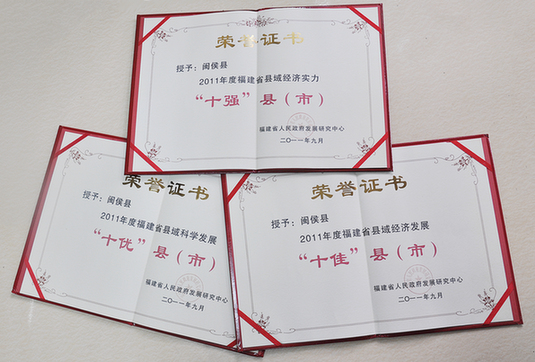 荣誉证书
授予：闽侯县
2011年度福建省县域经济实力
“十强”县（市）
福建省人民政府发展研究中心
二〇一一年九月
荣誉证书
授予：闽侯县
2011年度福建省县域科学发展
“十优”县（市）
福建省人民政府发展研究中心
二〇一一年九月
荣誉证书
授予：闽侯县
2011年度福建省县域经济发展
“十佳”县（市）
福建省人民政府发展研究中心
二〇一一年九月